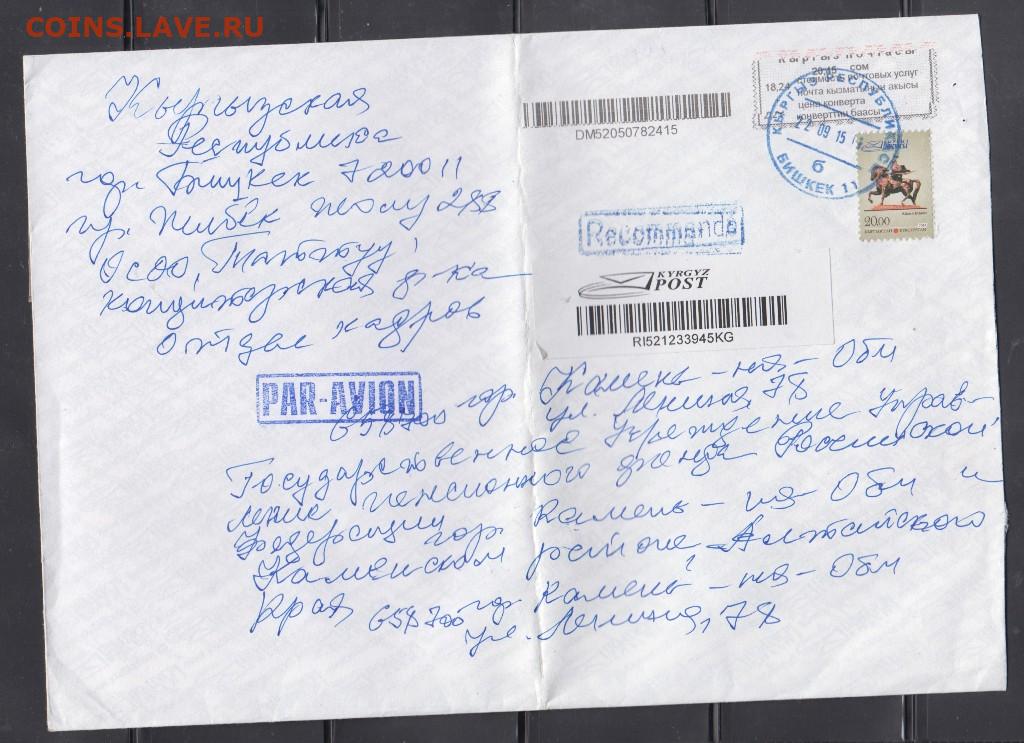 COINS.LAVE.RU
Кыргызская
Республика
гор. Бишкек 720011
пр. Жибек Жолу 288
ОсОО
отдел кадров
DM52050782415
Кыргыз почтасы
20,45 сом
18,24 стоимость почтовых услуг
почта кызматынын акысы
цена конверта
конверттин баасы
КЫРГЫЗ РЕСПУБЛИКАСЫ
22 09 15
б
БИШКЕК 11
20.00
КЫРГЫЗСТАН KYRGYZSTAN
Recommande
KYRGYZ
POST
RI521233945KG
PAR-AVION
658700 гор. Камень-на-Оби
ул. Ленина, 78
Государственное Учреждение Управ-
ление пенсионного фонда Российской
Федерации гор. Камень-на-Оби и
Каменском районе Алтайского
края 658700 гор. Камень-на-Оби
ул. Ленина, 78